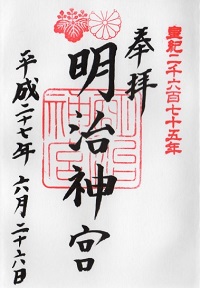 皇紀二千六百七十五年
奉拝
明治神宮
明治神宮
平成二十七年 六月二十六日